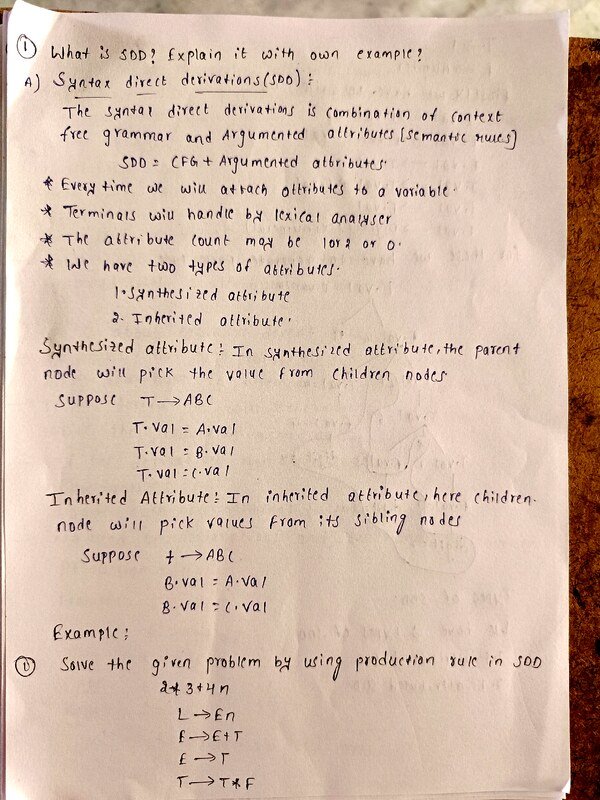 ① What is SDD? Explain it with own example?
A) Syntax direct derivations (SDD):
The syntax direct derivations is combination of context
free grammar and Argumented attributes [semantic rules]
SDD = CFG + Argumented attributes.
* Every time we will attach attributes to a variable.
* Terminals will handle by lexical analyser
* The attribute count may be 1 or 2 or 0.
* We have two types of attributes.
1. Synthesized attribute
2. Inherited attribute.
Synthesized attribute: In synthesized attribute, the parent
node will pick the value from children nodes
Suppose T → ABC
T.val = A.val
T.val = B.val
T.val = C.val
Inherited Attribute: In inherited attribute, here children
node will pick values from its sibling nodes
Suppose t → ABC
B.val = A.val
B.val = C.val
Example:
① Solve the given problem by using production rule in SDD
2*3+4n
L → En
E → E+T
E → T
T → T*F